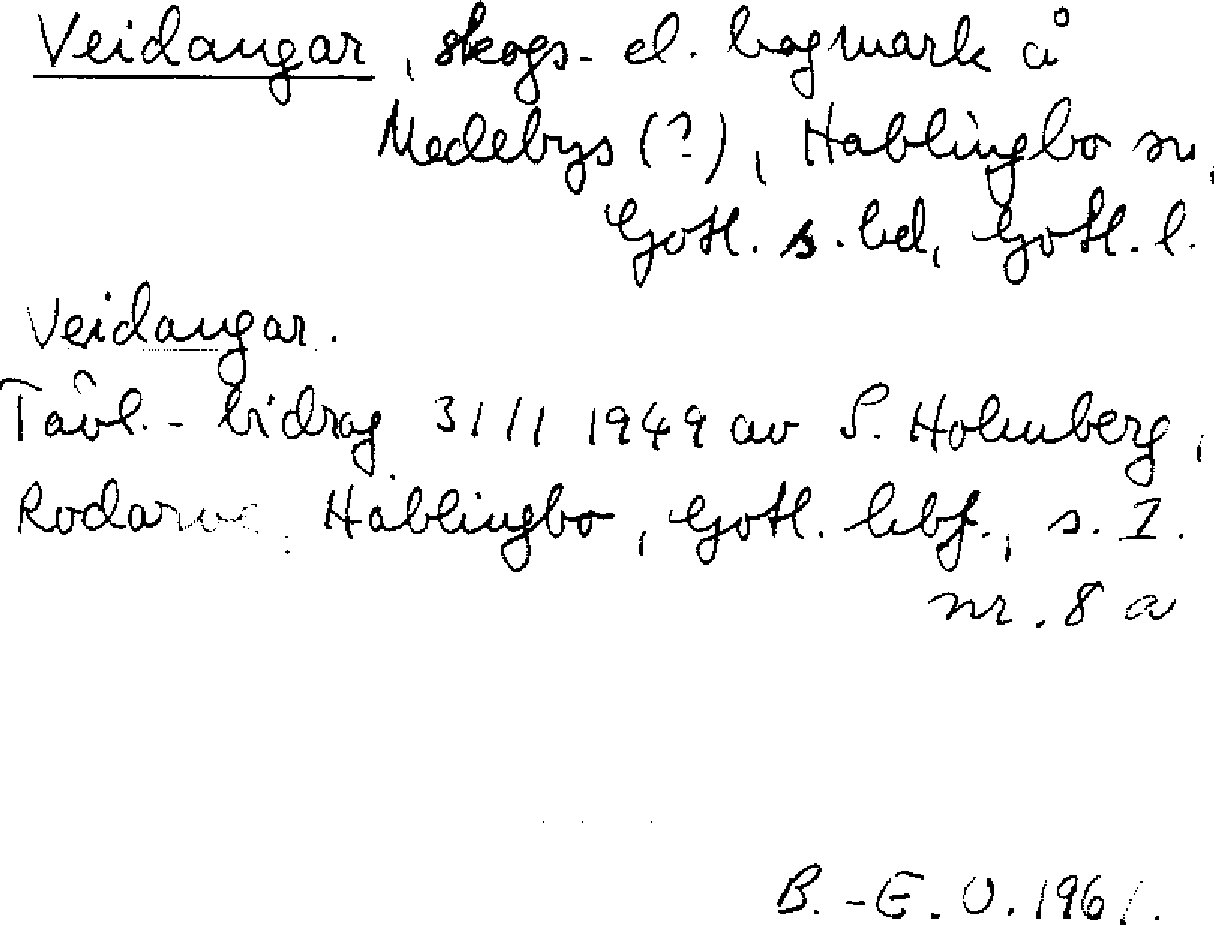 Veidaugar, skogs- el. hagmark å
Medebys (?), Hablingbo sn,
Gotl. s. hd, Gotl. l.
Veidaugar.
Tävl.-bidrag 31/1 1949 av S. Holmberg,
Rodarve, Hablingbo, Gotl. hbf., s. 1.
nr. 8 a
B.-E. O. 1961.